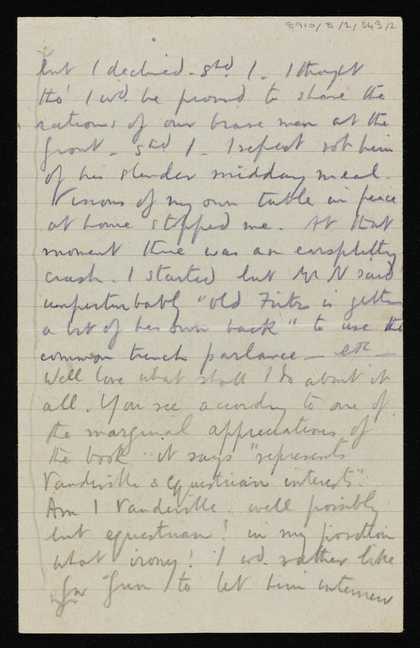 8910/8/2/343/2
but I declined - shd I - I thought
tho' I wd. be proud to share the
rations of our brave men at the
front - shd I - I repeat rob him
of his slender midday meal.
Visions of my own table in peace
at home stopped me. At that
moment there was an earsplitting
crash. I started but Mr N said
imperturbably "old Fritz is getting
a bit of his own back" to use the
common trench parlance - etc -
Well love what shall I do about it
all. You see according to one of
the marginal appreciations of
the book it says "represents
Vaudeville & equestrian interests".
Am I Vaudeville. well possibly
but equestrian! in my position
what irony! I wd. rather like
for to let him interview